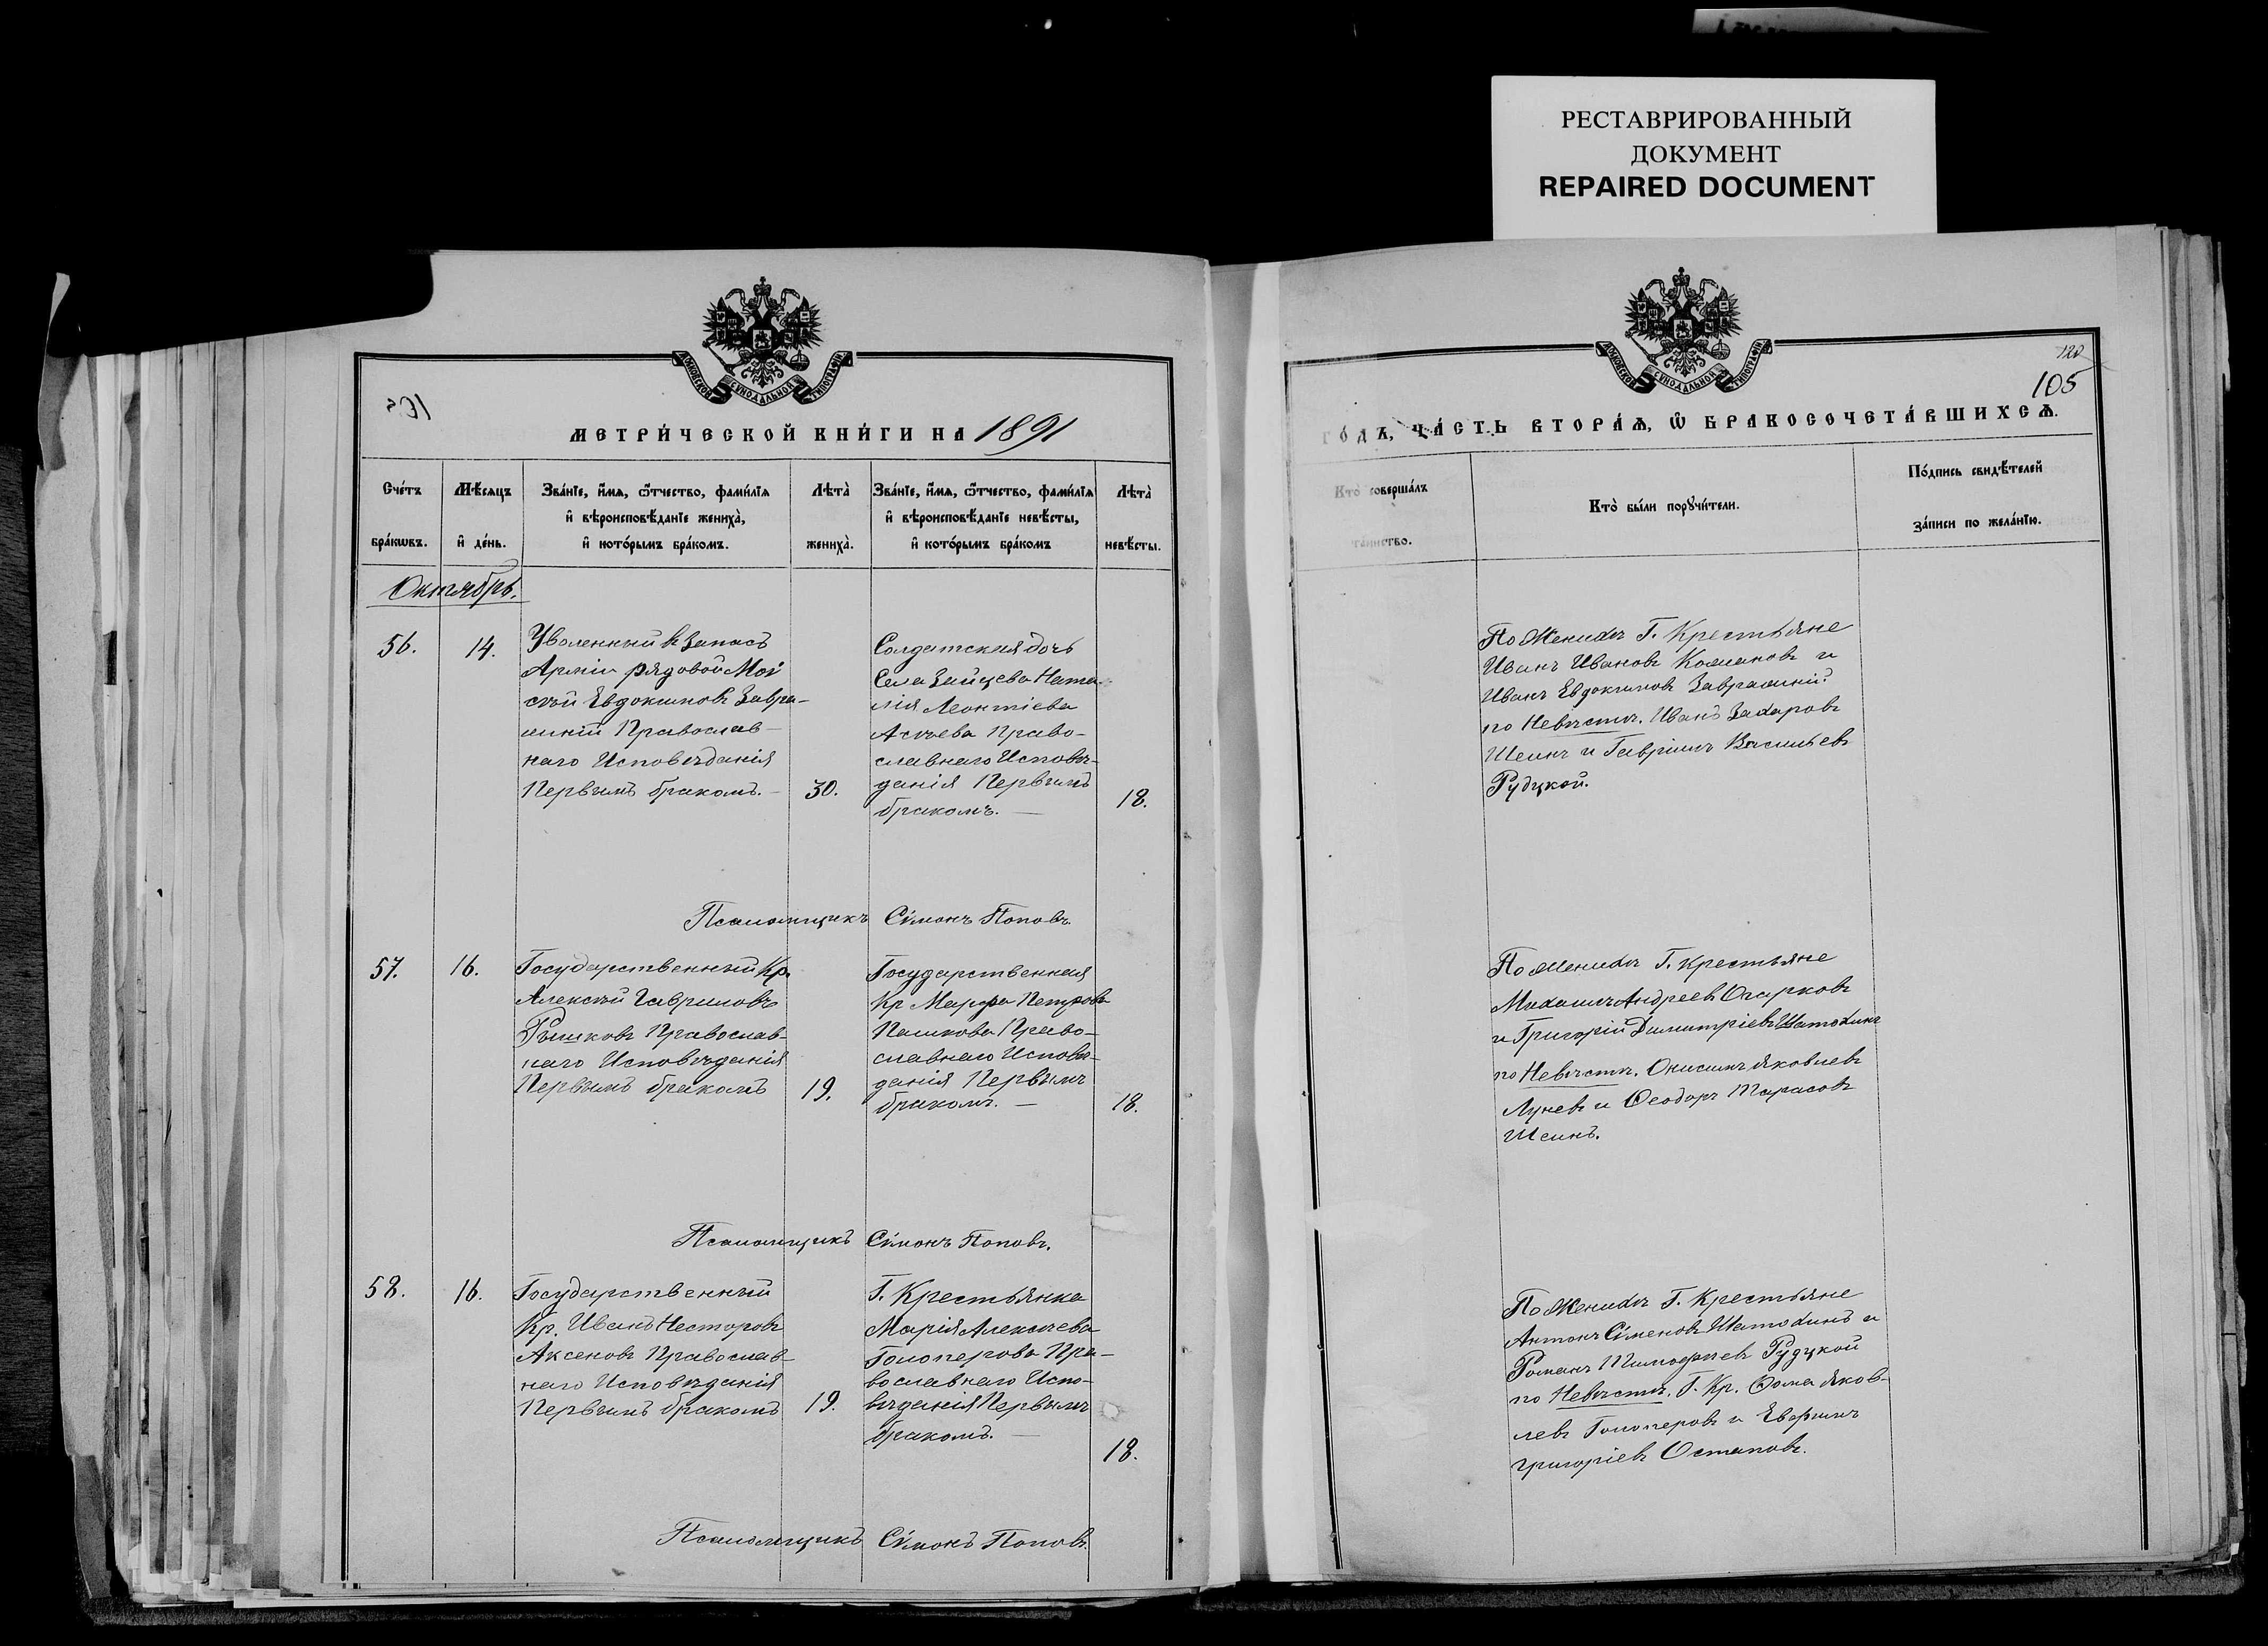 РЕСТАВРИРОВАННЫЙ
ДОКУМЕНТ
REPAIRED DOCUMENT
МОСКОВСКОЙ СѴНОДАЛЬНОЙ ТИПОГРАФІИ
МЕТРИ́ЧЕСКОЙ КНИ́ГИ НА 1891
Сче́тъ
бра́кѡвъ.
Мѣ́сѧцъ
и҆ де́нь.
Зва́нїе, и҆́мѧ, ѻ҆́тчество, фами́лїѧ
и҆ вѣроисповѣ́данїе жениха̀,
и҆ кото́рымъ бра́комъ.
Лѣта̀
жениха̀.
Зва́нїе, и҆́мѧ, ѻ҆́тчество, фами́лїѧ
и҆ вѣроисповѣ́данїе невѣ́сты,
и҆ кото́рымъ бра́комъ
Лѣта̀
невѣ́сты.
Октябрь.
56.
14.
Уволенный въ Запасъ
Арміи рядовой Мои
сѣй Евдокимовъ Завра-
шній Православ-
наго Исповѣданія
Первымъ бракомъ.
30.
Солдатская дочь
Села Зайцева Ната-
лія Леонтіева
Асѣева Право-
славнаго Исповѣ-
данія Первымъ
бракомъ.
18.
Псаломщикъ Симонъ Поповъ.
57.
16.
Государственный Кр.
Алексѣй Гавриловъ
Рышковъ Православ-
наго Исповѣданія
Первымъ бракомъ
19.
Государственная
Кр Марфа Петрова
Пашкова Право-
славнаго Исповѣ-
данія Первымъ
бракомъ.
18.
Псаломщикъ Симонъ Поповъ.
58.
16.
Государственный
Кр. Иванъ Несторовъ
Аксеновъ Православ-
наго Исповѣданія
Первымъ бракомъ
19.
Г. Крестьянка
Марія Алексѣева
Голоперова Пра-
вославнаго Испо-
вѣданія Первымъ
бракомъ.
18.
Псаломщикъ Симонъ Поповъ.
МОСКОВСКОЙ СѴНОДАЛЬНОЙ ТИПОГРАФІИ
120
105
ГО́ДЪ, ЧА́СТЬ ВТОРА́Ѧ, Ѽ БРАКОСОЧЕТА́ВШИХСѦ.
Кто̀ соверша́лъ
та́инство.
Кто̀ бы́ли порꙋчи́тели.
По́дпись свидѣ́телей
за́писи по жела́нїю.
По Женихѣ Г. Крестьяне
Иванъ Ивановъ и
Иванъ Евдокимовъ Заврашній.
по Невѣстѣ. Иванъ Захаровъ
Шеинъ и Гавріилъ Васильевъ
Рудцкой.
По Женихѣ Г. Крестьяне
Михаилъ Андреевъ Огарковъ
и Григорій Димитріевъ Шатохинъ
по Невѣстѣ. Онисимъ Яковлевъ
Луневъ и Ѳеодоръ Тарасовъ
Шеинъ.
По Женихѣ Г. Крестьяне
Антонъ Сименовъ Шатохинъ и
Романъ Тимофѣевъ Рудцкой
по Невѣстѣ. Г. Кр. Ѳома Яков-
левъ Голоперовъ и Евфимъ
Григоріевъ Остаповъ.